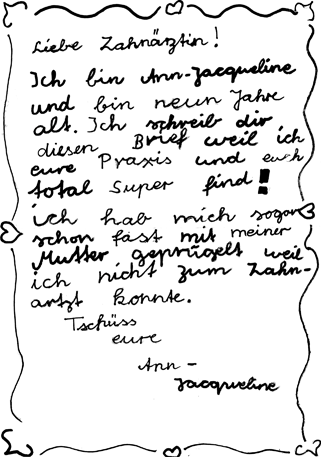 Liebe Zahnärztin!
Ich bin Ann-Jacqueline
und bin neun Jahre
alt. Ich schreib dir
diesen Brief weil ich
eure Praxis und euch
total super find!
ich hab mich sogar
schon fast mit meiner
Mutter geprügelt weil
ich nicht zum Zahn-
artzt konnte.
Tschüss
eure
Ann-
Jacqueline